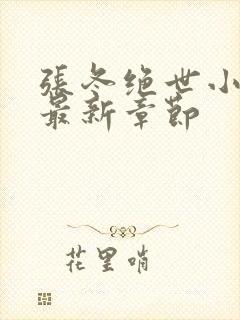 張冬绝世小
最新章節
花里哨